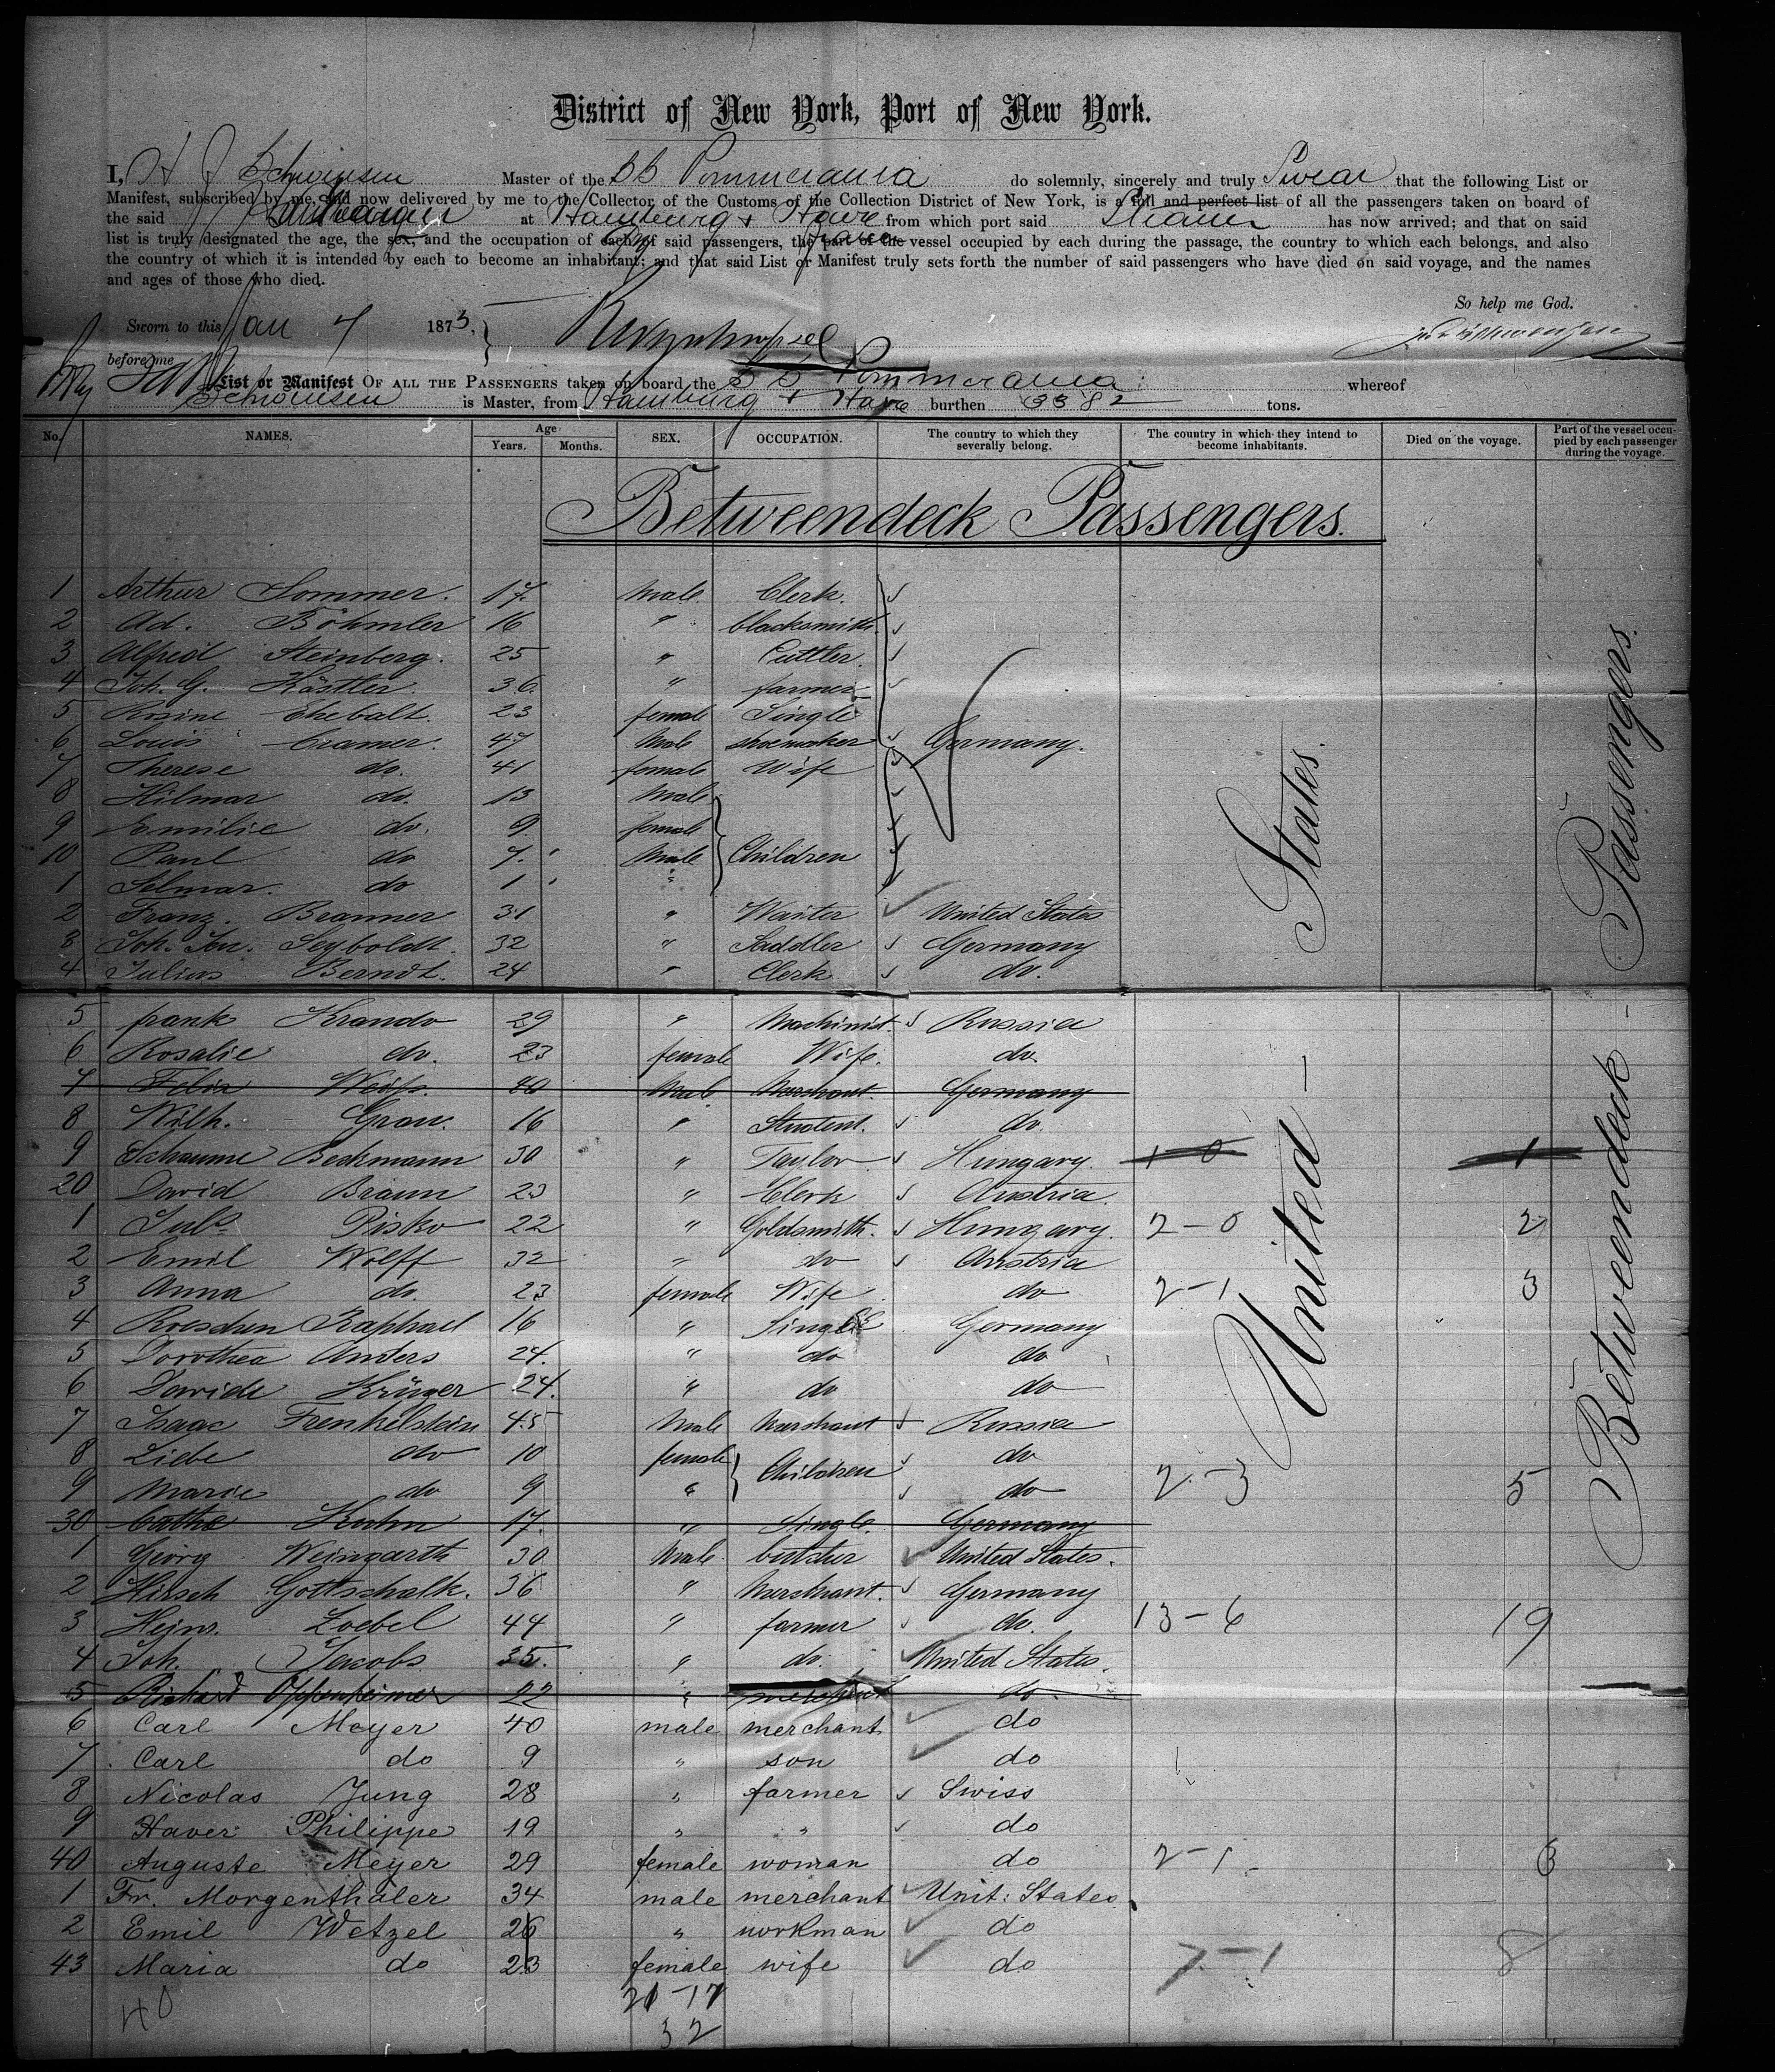 District of New York, Port of New York.
I, H J Schwensen Master of the SS Pommerania do solemnly, sincerely and truly Swear that the following List or
Manifest, subscribed by me, and now delivered by me to the Collector of the Customs of the Collection District of New York, is a full and perfect list of all the passengers taken on board of
the said at Hamburg + Havre from which port said Steamer has now arrived; and that on said
list is truly designated the age, the sex, and the occupation of each of said passengers, the part of the vessel occupied by each during the passage, the country to which each belongs, and also
the country of which it is intended by each to become an inhabitant; and that said List or Manifest truly sets forth the number of said passengers who have died on said voyage, and the names
and ages of those who died.
So help me God.
Sworn to this Jan 4 1873,
before me
List or Manifest OF ALL THE PASSENGERS taken on board the S S Pommerania whereof
Schwensen is Master, from Hamburg + Havre burthen 3382 tons.
No. NAMES. Age Years. Months. SEX. OCCUPATION. The country to which they severally belong. The country in which they intend to become inhabitants. Died on the voyage. Part of the vessel occupied by each passenger during the voyage.
Betweendeck Passengers.
1 Arthur Sommer. 17. Male. Clerk.
2 Ad. Böhmler 16 " blacksmith.
3 Alfred Steinberg. 25 " Cuttler.
4 Joh. G. Kästler. 36. " farmer
5 Rosine Ehebalt. 23 female Single
6 Louis Cramer. 47 Male shoemaker Germany.
7 Therese do. 41 female Wife
8 Hilmar do. 13 Male
9 Emilie do. 9 female
10 Paul do 7. Male Children
1 Selmar. do 1 "
2 Franz. Branner 31 " Waiter United States
3 Joh. Seyboldt. 32 " Saddler Germany
4 Julius Berndt. 24 " Clerk do.
5 frank Krando 29 " Machinist. Russia
6 Rosalie do. 23 female Wife. do.
7 Felix Weiss. 40 Male Merchant. Germany
8 Wilh. Grau. 16 " Student. do.
9 Beckmann 30 " Taylor Hungary. 1-0 1
20 David Braun 23 " Clerk Austria.
1 Juls Pisko 22 " Goldsmith. Hungary. 2-0 2
2 Emil Wolff 32 " do Austria
3 Anna do. 23 female Wife do 2-1 3
4 Roeschen Raphael 16 " Single Germany
5 Dorothea Anders 24. " do do
6 Davide Krüger 24. " do do
7 Isaac Frenkelstein 45 Male Marchant Russia
8 Liebe do 10 female Children do
9 Marie do 9 " do 2-3 5
30 Cathe Kuhn 17. " Single. Germany
1 Georg Weingarth 30 Male butcher United States.
2 Hirsch Gottschalk. 36 " Merchant. Germany
3 Heinr. Loebel 44 " farmer do. 13-6 19
4 Joh. Jacobs 35. " do. United States.
5 Richard Oppenheimer 22 " merchant do.
6 Carl Meyer 40 male merchant do
7 Carl do 9 " son do
8 Nicolas Jung 28 " farmer Swiss
9 Xaver Philippe 19 " " do
40 Auguste Meyer 29 female woman do 2-1 3
1 Fr. Morgenthaler 34 male merchant Unit: States
2 Emil Wetzel 26 " workman do
43 Maria do 23 female wife do 7-1 8
40 21-17
32
United States.
Betweendeck Passengers.